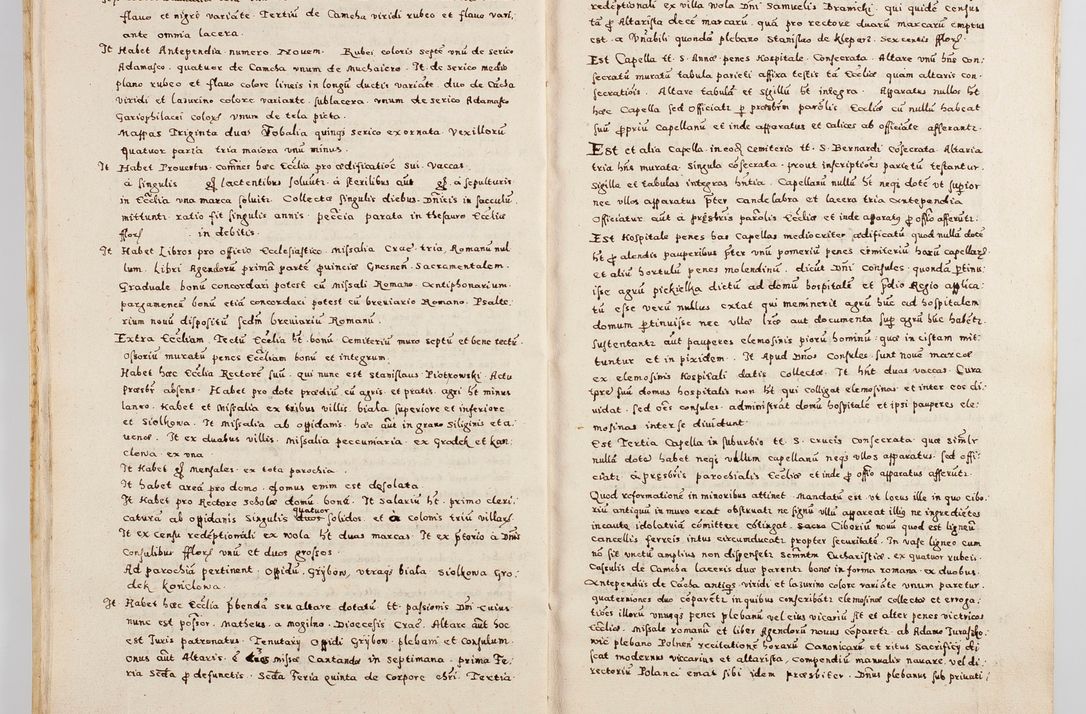 flauo et nigro variate. Tertiũ de Camcha viridi rubeo et flauo vari,
ante omnia lacera.
It Habet Antependia numero Nouem. Rubei coloris septẽ vnũ de serico
Adamasco. quatuor de Camcha vnum de Muchaiero. It. de serico medio
plano rubeo et flauo colore lineis in longũ ductis variate. duo de Cãcha
viridi et lasurino colore variante. sublacera. vnum de serico Adamasko
Gariophilacei coloris vnum de tela picta.
Mappas Triginta duas Tobalia quinqȝ serico exornata. Vexillorũ
Quatuor paria tria maiora vnũ minus.
It Habet Prouentus. com̃nes hæc Ecclia pro ædificatioẽ sui. vaccas
à singulis gr̃ lactentibus soluitr. à sterilibus aũt gr̃. à sepulturis
in Ecclia vna marca soluitr. Collecta singulis diebus. Dñicis in sacculũ
mittuntr. ratio fit singulis annis. pecĩa parata in thesauro Eccliæ
fflor̃ in debitis.
It Habet Libros pro officio Ecclesiastico. Missalia Crac̃. tria, Romanũ nul
lum. Libri Agendorũ primã partẽ ꝓuinciæ Gnesneñ. Sacramentalem.
Graduale bonũ concordari potest cũ missali Romano. Antiphonarium
pargameneũ bonũ etiã concordari potest cũ breuiario Romano. Psalte,
rium nouũ dispositũ secdm̃ breuiariũ Romanũ.
Extra Eccliam. Tectũ Ecclia ht̃ bonũ. Cemiteriũ muro septũ et bene tectũ.
Ossoriũ muratũ penes Eccliam bonũ et integrum.
Habet hæc Ecclia Rectorẽ suũ. qui nunc est Stanislaus Piotrowski. Actu
Præsbr̃ absens. Habet pro dote prædiũ cũ agris et pratis. agri ht̃ minus
laneo. Habet et Missalia ex tribus villis. biala superiore et inferiore
et Siolkona. It Missalia ab oppidanis. hæc aũt in grano siliginis et a,
uenæ. It ex duabus villis. Missalia peccumiaria. ex Grodek et Kon
clowa. ex vna
It Habet gr̃ Mensales. ex tota parochia.
It habet areã pro domo. domus enim est desolata.
It Habet pro Rectore scholæ domũ bonũ. It salariũ ht̃. primo cleri,
catura ab oppidanis singulis quatuor solidos. et à colonis triũ villarũ
It ex censu redẽptionali ex wola ht̃ duas marcas. It ex p̃torio à Dñis
Consulibus fflor̃ vnũ et duos grossos.
Ad parochiã pertinent. Oppidũ. Grijbow. vtraqȝ biala Siolkowa Gro,
dek konclowa.
It Habet hæc Ecclia p̃bendã seu altare dotatũ tt. passionis Dñi. Cuius
nunc est possor. Matheus à mogilno. Diocesis Crac̃. Altare aũt hoc
est Juris patronatus. Tenutarij Oppidi Grijbow. plebani et Consulum.
onus aũt Altaris ẽ missæ Cantandæ in septimana. prima Fe,
ria Scda ꝓ defunctis. Scda Feria quinta de Corpore chr̃i. Tertia
redẽptionali ex villa wola Dñi Samuelis Branicki. qui quidẽ census
tã ꝓ Altarista decẽ marcarũ. quã pro rectore duarũ marcarũ emptus
est. a Vñabili quondã plebano Stanislao de kleparz. Sexcentis fflor̃
Est Capella tt. S. Annæ penes Hospitale. Consecrata. Altare vnũ hñs con,
secratũ muratũ tabula parieti affixa testis tã Eccliæ quam altaris con,
secratiõis. Altare tabulã et sigillũ ht̃ integra. Apparatus nullos ht̃
hæc Capella sed Officiatr ꝑ præsbrm̃ parõlis Eccliæ cũ nullũ habeat
suũ ꝓpriũ Capellanũ et inde apparatus et calices ab officiãte afferantr.
Est et alia Capella in eodẽ cemiterio tt. S. Bernardi cõsecrata. Altaria
tria hñs murata. Singula cõsecrata. prout inscriptiões parietũ testantur.
Sigilla et tabulas integras hñtia. Capellanũ nullũ ht̃ neqȝ dotẽ vt supior
nec vllos apparatus p̃ter candelabra et lacera tria Antependia
Officiatur aũt à præsbr̃is parõlis Eccliæ et inde apparatȝ ꝓ offõ afferũtr.
Est Hospitale penes has Capellas mediocriter ædificatũ quod nullã dotẽ
ht̃ ꝓ alendis pauperibus p̃ter vnũ pomeriũ penes cemiteriũ harũ capellarũ
et aliũ hortulũ penes molendinũ. dicũt Dñi Consules. quondã ꝑtinu,
isse agrũ piekielka dictũ ad domũ hospitalẽ et p̃dio Regio applica,
tũ esse verũ nullus extat qui meminerit agrũ hũc ad hospitalem
domum ꝑtinuisse nec vllæ lr̃æ aut documenta sup agrũ hũc habẽtr.
Sustentantr aut pauperes elemosinis piorũ hominũ quæ in cistam mit,
tuntur et in pixidem. It Apud Dños Consules. sunt nouẽ marcæ
ex elemosinis Hospitali datis collectæ. It hñt duas vaccas. Cura
tore suũ domus hospitalis non ht̃ qui colligat elemosinas et inter eos di,
uidat. sed oẽs consules. administrãt domũ hospitalẽ et ipsi pauperes ele,
mosinas inter se diuidunt.
Est Tertia Capella in suburbio tt. S. crucis Consecrata. quæ simr̃
nullã dotẽ habet neqȝ vllum capellanũ neqȝ vllos apparatus. sed offi,
ciatr à præsbr̃is parochialis Eccliæ et inde ꝓ offõ apparatus afferũtr.
Quod reformationẽ in minoribus attinet. Mandatũ est vt locus ille in quo cibo,
riũ antiquũ in muro erat obstruatr ne signũ vllũ appareat illiȝ ne ingrediẽtes
incaute idolatriã cõmittere cõtingat. Sacra Ciboriũ nouũ quod est ligneũ
cancellis ferreis. intus circumducatr propter securitatẽ. In vase ligneo cum
nõ sit vnctũ amplius non dispensetr Semr̃tm̃ Eucharistiæ. ex quatuor rubeis
Casulis de Camcha laceris duæ parentr bonæ in forma romana. ex duobus
Antependijs de Cãcha antiqȝ viridi et lazurino colore variãte vnum paretur.
quaterniones duo cõparẽtr in quibus conscribãtr elemosinæ collectæ et eroga,
tiões illorũ vnusqȝ penes plebanũ vel eius vicariũ sit et alter penes victricos
Eccliæ. Missale romanũ et liber Agendorũ nouus cõparetr. ab Adamo Juraszko,
wic plebano Polneñ recitationẽ horarũ Canonicarũ et ritus Sacrificij di,
scat modernus viccarius et altarista. compendiũ manualis nauare. vel di,
rectoriũ Polanci emat sibi idem præsbiter. Dñus plebanus sub priuati,